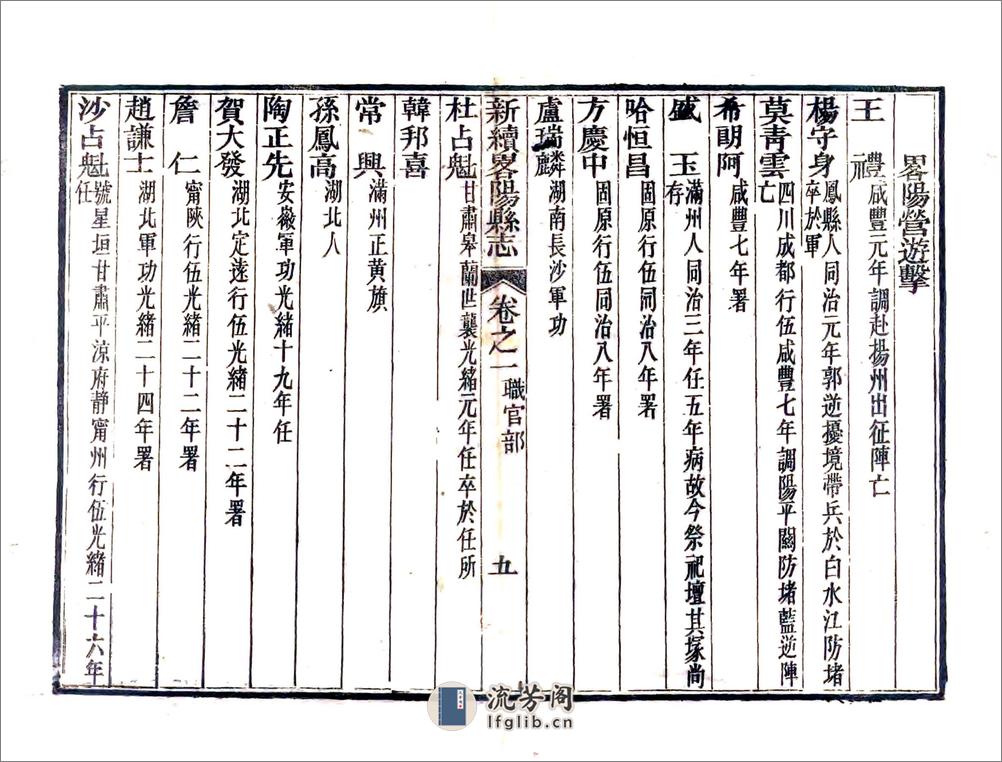 畧陽營遊擊
王　禮咸豐元年調赴揚州出征陣亡
楊守身鳳縣人同治元年郭逆擾境帶兵於白水江防堵
卒於軍
莫青雲四川成都行伍咸豐七年調陽平關防堵藍逆陣
亡
希朗阿咸豐七年署
盛　玉滿州人同治三年任五年病故今祭祀壇其塚尚
存
哈恒昌固原行伍同治八年署
方慶中固原行伍同治八年署
盧瑞麟湖南長沙軍功
新續畧陽縣志　卷之一　職官部　五
杜占魁甘肅皋蘭世襲光緒元年任卒於任所
韓邦喜
常　興滿州正黄旗
孫鳳高湖北人
陶正先安徽軍功光緒十九年任
賀大發湖北定遠行伍光緒二十二年署
詹　仁甯陝行伍光緒二十二年署
趙謙士湖北軍功光緒二十四年署
沙占魁號星垣甘肅平涼府静甯州行伍光緒二十六年
任
流芳阁
lfglib.cn